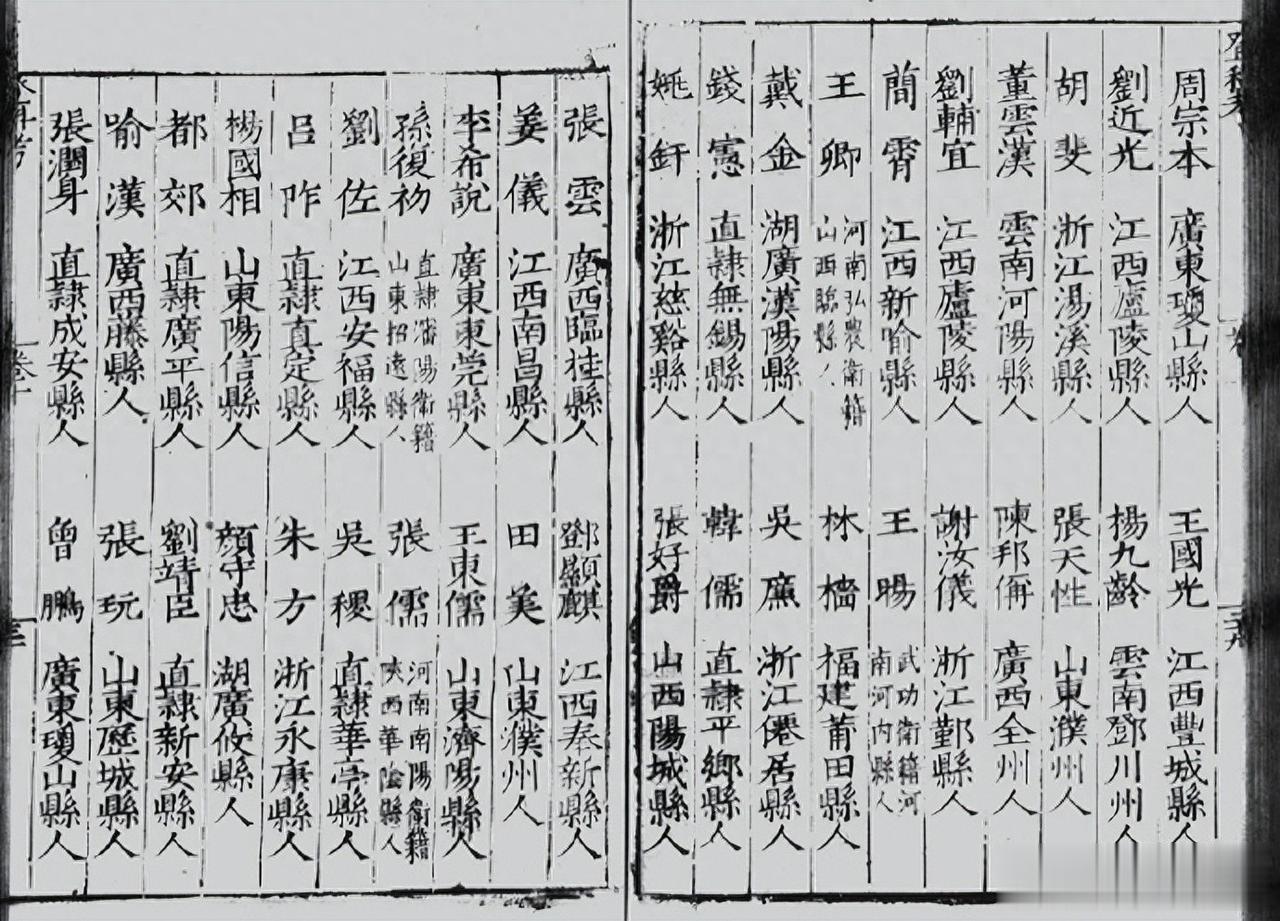 周宗本 廣東瓊山縣人 王國光 江西豐城縣人
劉近光 江西廬陵縣人 楊九齡 雲南鄧川州人
胡斐 浙江湯溪縣人 張天性 山東濮州人
董雲漢 雲南河陽縣人 陳邦偁 廣西全州人
劉輔宜 江西廬陵縣人 謝汝儀 浙江鄞縣人
簡霄 江西新喻縣人 王暘 武功衛籍河南河内縣人
王卿 河南弘農衛籍山西臨縣人 林檣 福建莆田縣人
戴金 湖廣漢陽縣人 吳廉 浙江僊居縣人
錢憲 直隷無錫縣人 韓儒 直隷平鄉縣人
姚釬 浙江慈谿縣人 張好爵 山西陽城縣人
張雲 廣西臨桂縣人 鄧顯麒 江西奉新縣人
姜儀 江西南昌縣人 田美 山東濮州人
李希說 廣東東莞縣人 王東儒 山東濟陽縣人
孫復初 直隷瀋陽衛籍山東招遠縣人 張儒 河南南陽衛籍陝西華陰縣人
劉佐 江西安福縣人 吳稷 直隷華亭縣人
吕㕻 直隷真定縣人 朱方 浙江永康縣人
楊國相 山東陽信縣人 顏守忠 湖廣攸縣人
都郊 直隷廣平縣人 劉靖臣 直隷新安縣人
喻漢 廣西藤縣人 張玩 山東歷城縣人
張潤身 直隷成安縣人 曾鵬 廣東瓊山縣人